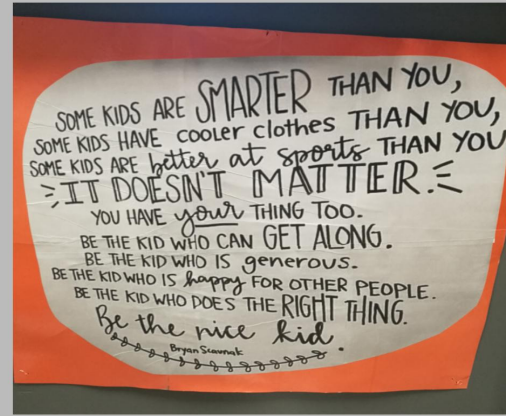 SOME KIDS ARE SMARTER THAN YOU,
SOME KIDS HAVE cooler clothes THAN YOU,
SOME KIDS ARE better at sports THAN YOU
IT DOESN'T MATTER.
YOU HAVE your THING TOO.
BE THE KID WHO CAN GET ALONG.
BE THE KID WHO IS generous.
BE THE KID WHO IS happy FOR OTHER PEOPLE.
BE THE KID WHO DOES THE RIGHT THING.
Be the nice kid.
Bryan Scavnak